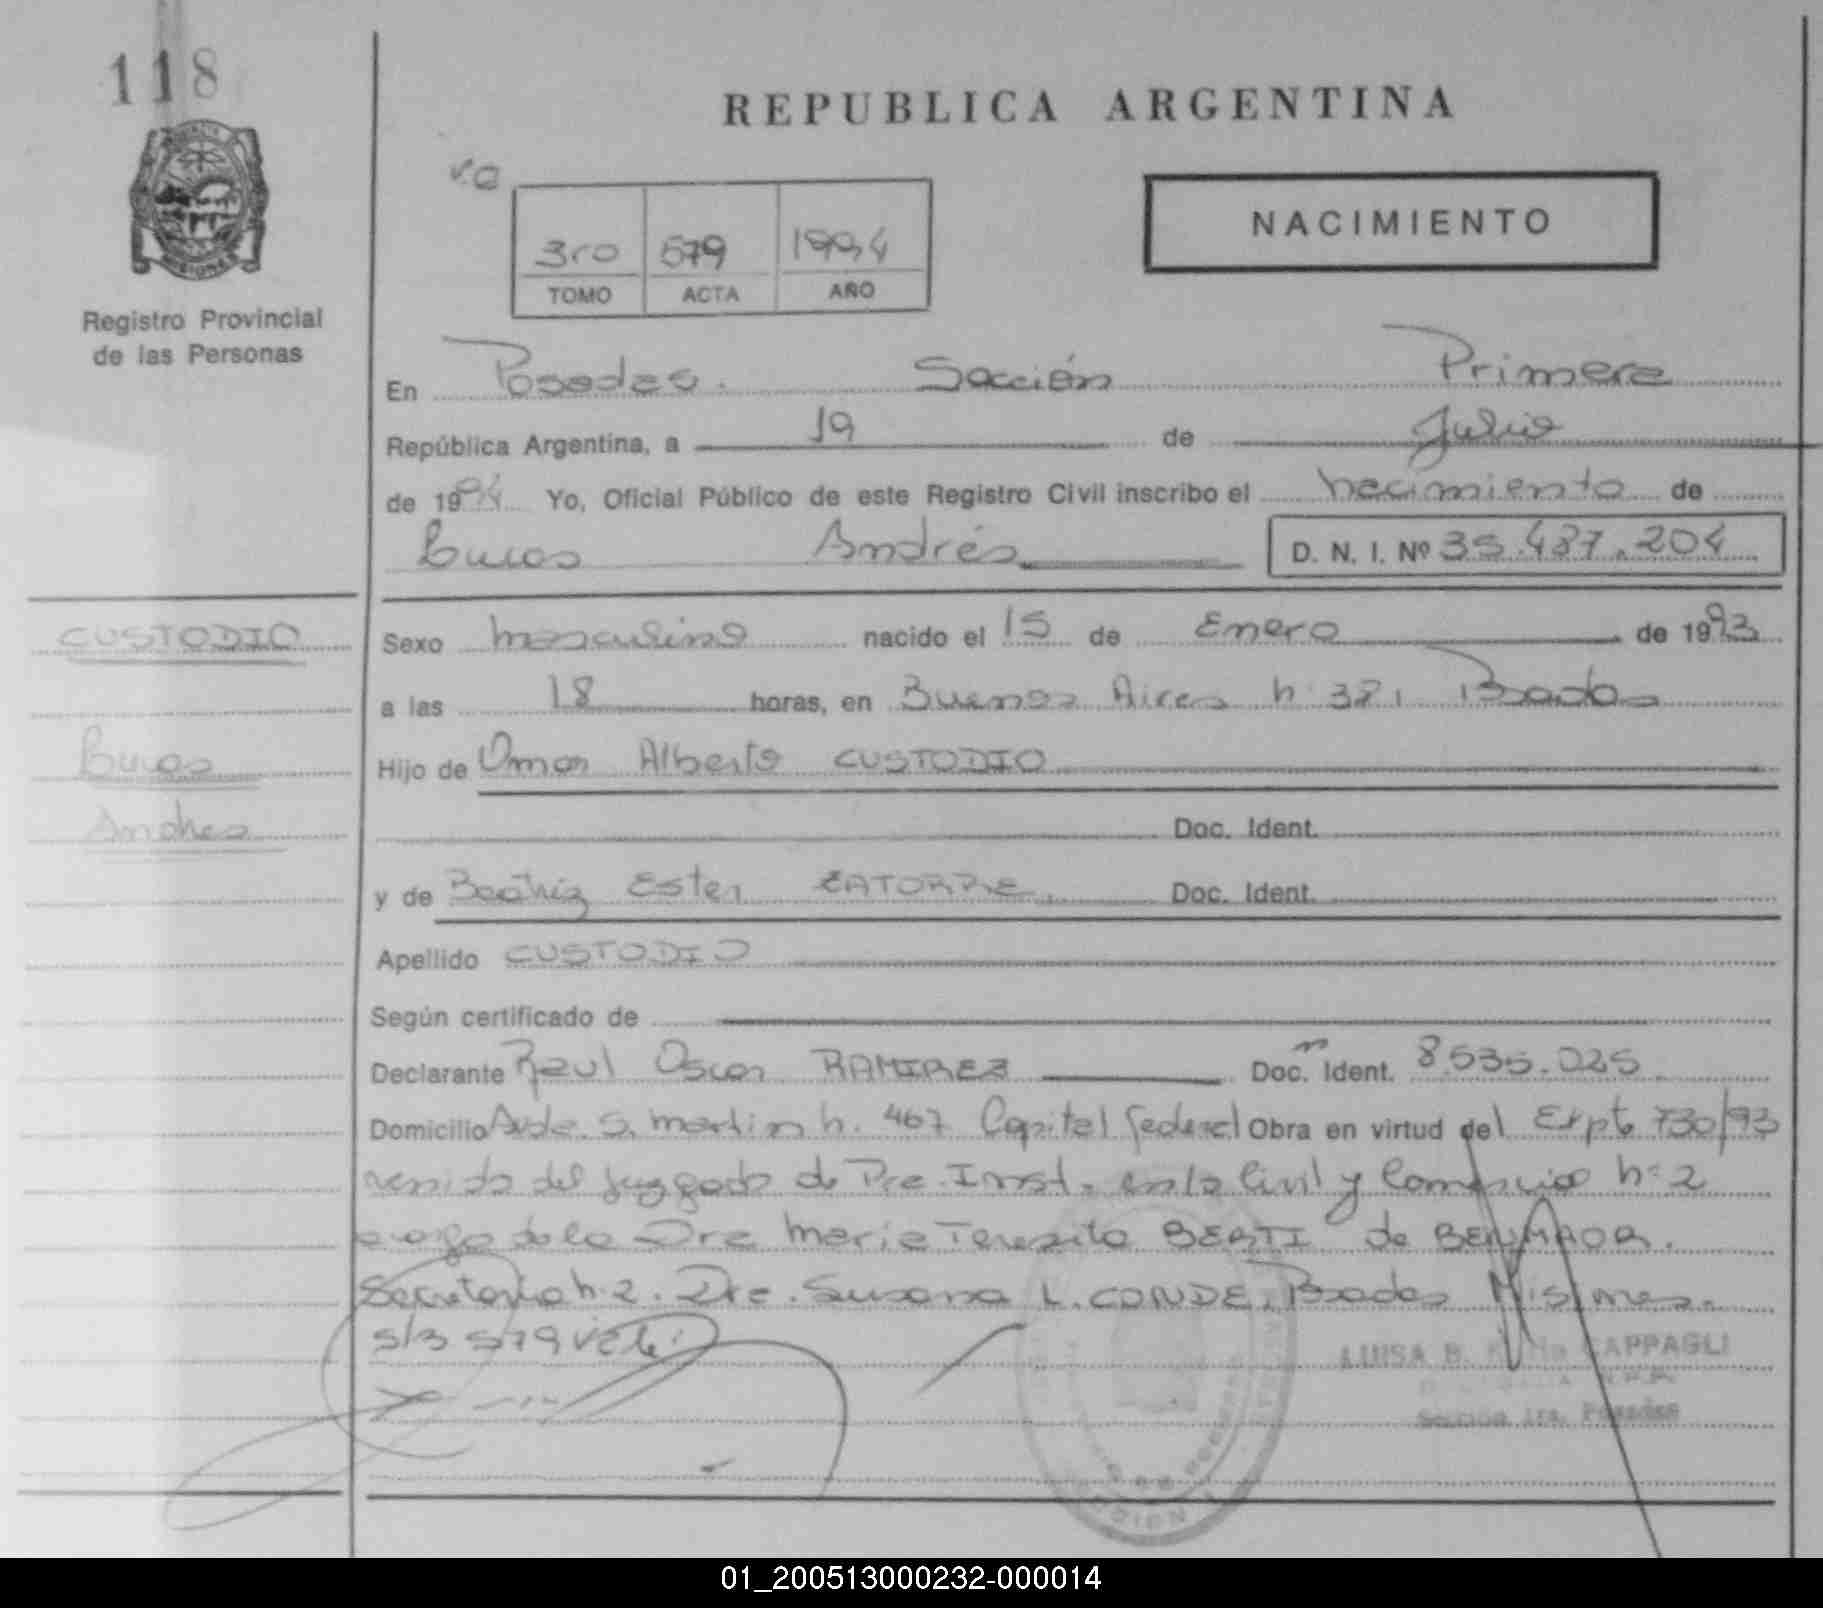 118
REPUBLICA ARGENTINA
NACIMIENTO
3ro 579 1994
TOMO ACTA AÑO
Registro Provincial
de las Personas
En Posadas. Sección Primera
República Argentina, a 19 de Julio
de 1994 Yo, Oficial Público de este Registro Civil inscribo el nacimiento de
Lucas Andrés D. N. I. Nº 35.437.204
CUSTODIO
Sexo masculino nacido el 15 de Enero de 1993
a las 18 horas, en Buenos Aires n: 381 Posadas
Lucas
Hijo de Omar Alberto CUSTODIO
Andres
Doc. Ident.
y de Beatriz Ester Doc. Ident.
Apellido CUSTODIO
Según certificado de
Declarante Raul Oscar RAMIREZ Doc. Ident. 8.535.025
Domicilio Avda. S. martin n. 467 Capital federal Obra en virtud del Expte 730/93
venido del juzgado de Pre. Inst. en lo Civil y Comercial n: 2
a cargo de la Dra Maria Teresita BERTI de BENMAOR.
Secretaria n: 2. Dra. Susana L. CONDE, Posadas Misiones.
s/3 579 vale.
LUISA B. CAPPAGLI
Sección 1ra. Posadas
01_200513000232-000014